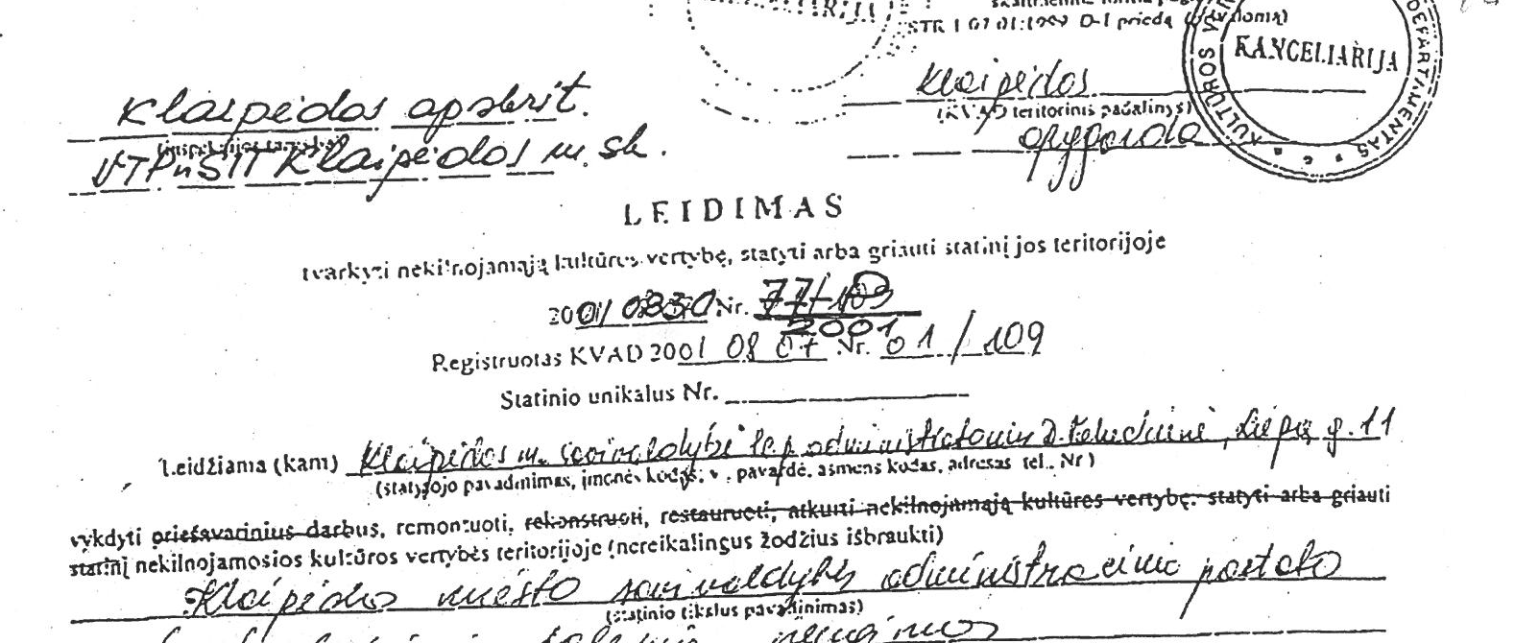 STR 1.07.01:1999 D-1 priedą
KANCELIARIJA
Klaipėdos apskrit.
VTPirSIT Klaipėdos m. sk.
Klaipėdos
(KVAD teritorinis padalinys)
LEIDIMAS
tvarkyti nekilnojamąją kultūros vertybę, statyti arba griauti statinį jos teritorijoje
2001 0830 Nr. 77/109
2001
Registruotas KVAD 2001 08 07 Nr. 01/109
Statinio unikalus Nr.
Leidžiama (kam) Klaipėdos m. savivaldybė Liepų g. 11
(statytojo pavadinimas, įmonės kodas, v., pavardė, asmens kodas, adresas tel., Nr)
vykdyti priešavarinius darbus, remontuoti, rekonstruoti, restauruoti, atkurti nekilnojamąją kultūros vertybę; statyti arba griauti
statinį nekilnojamosios kultūros vertybės teritorijoje (nereikalingus žodžius išbraukti)
Klaipėdos miesto savivaldybės administracinio pastato
(statinio tikslus pavadinimas)